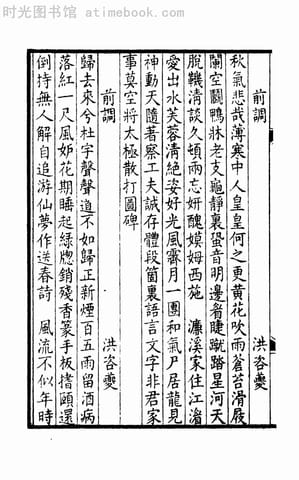 时光图书馆 — atimebook.com
前調　洪咨夔
秋氣悲哉薄寒中人皇皇何之更黃花吹雨蒼苔滑屐
闌空鬭鴨牀老支龜靜裏蛩音明邊眉睫蹴踏星河天
脫鞿清談久頓兩忘妍醜嫫姆西施　濂溪家住江湄
愛出水芙蓉清絕姿好光風霽月一團和氣尸居龍見
神動天隨著察工夫誠存體段箇裏語言文字非君家
事莫空將太極散打圓碑
前調　洪咨夔
歸去來兮杜宇聲聲道不如歸正新煙百五雨留酒病
落紅一尺風妒花期睡起綠牕銷殘香篆手板搘頤還
倒持無人解自追游仙夢作送春詩　風流不似年時